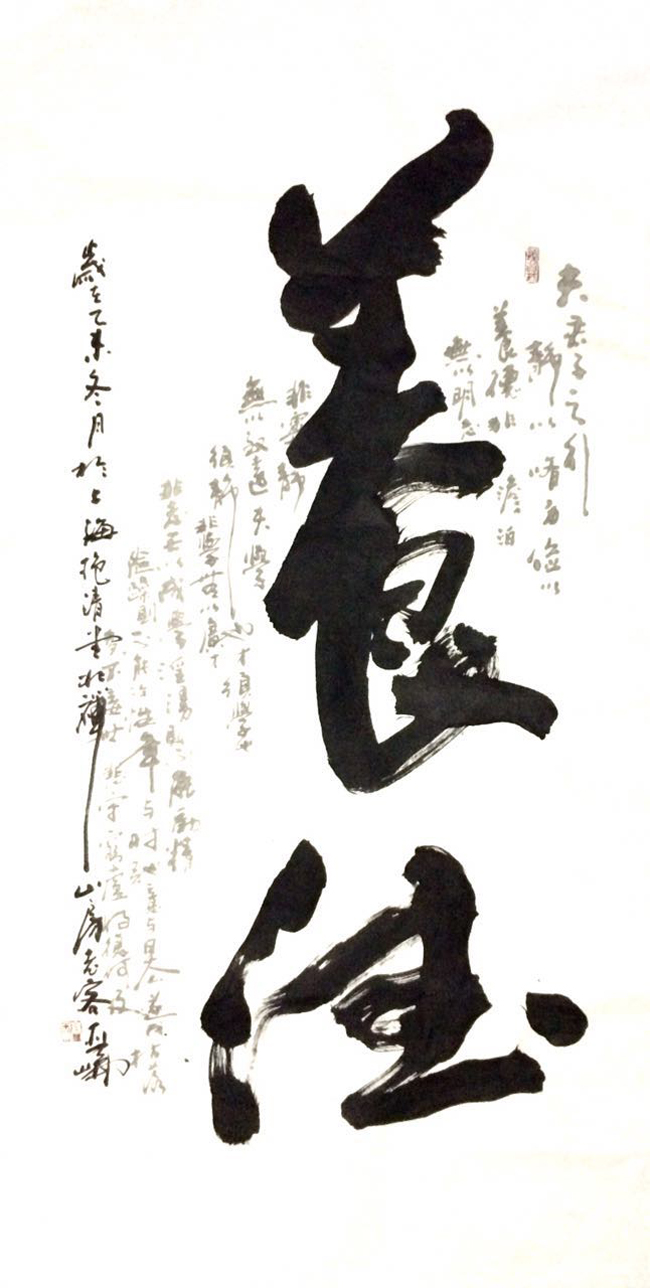 養德
夫君子之行
靜以脩身儉以
養德非澹泊
無以明志
非寧靜
無以致遠夫學
須靜也才須學也
非學無以廣才
非志無以成學淫漫則不能勵精
險躁則不能治性年与時馳意与日去遂成枯落
多不接世悲守窮廬將復何及
歲在乙未冬月於上海抱清書於禪山房老客